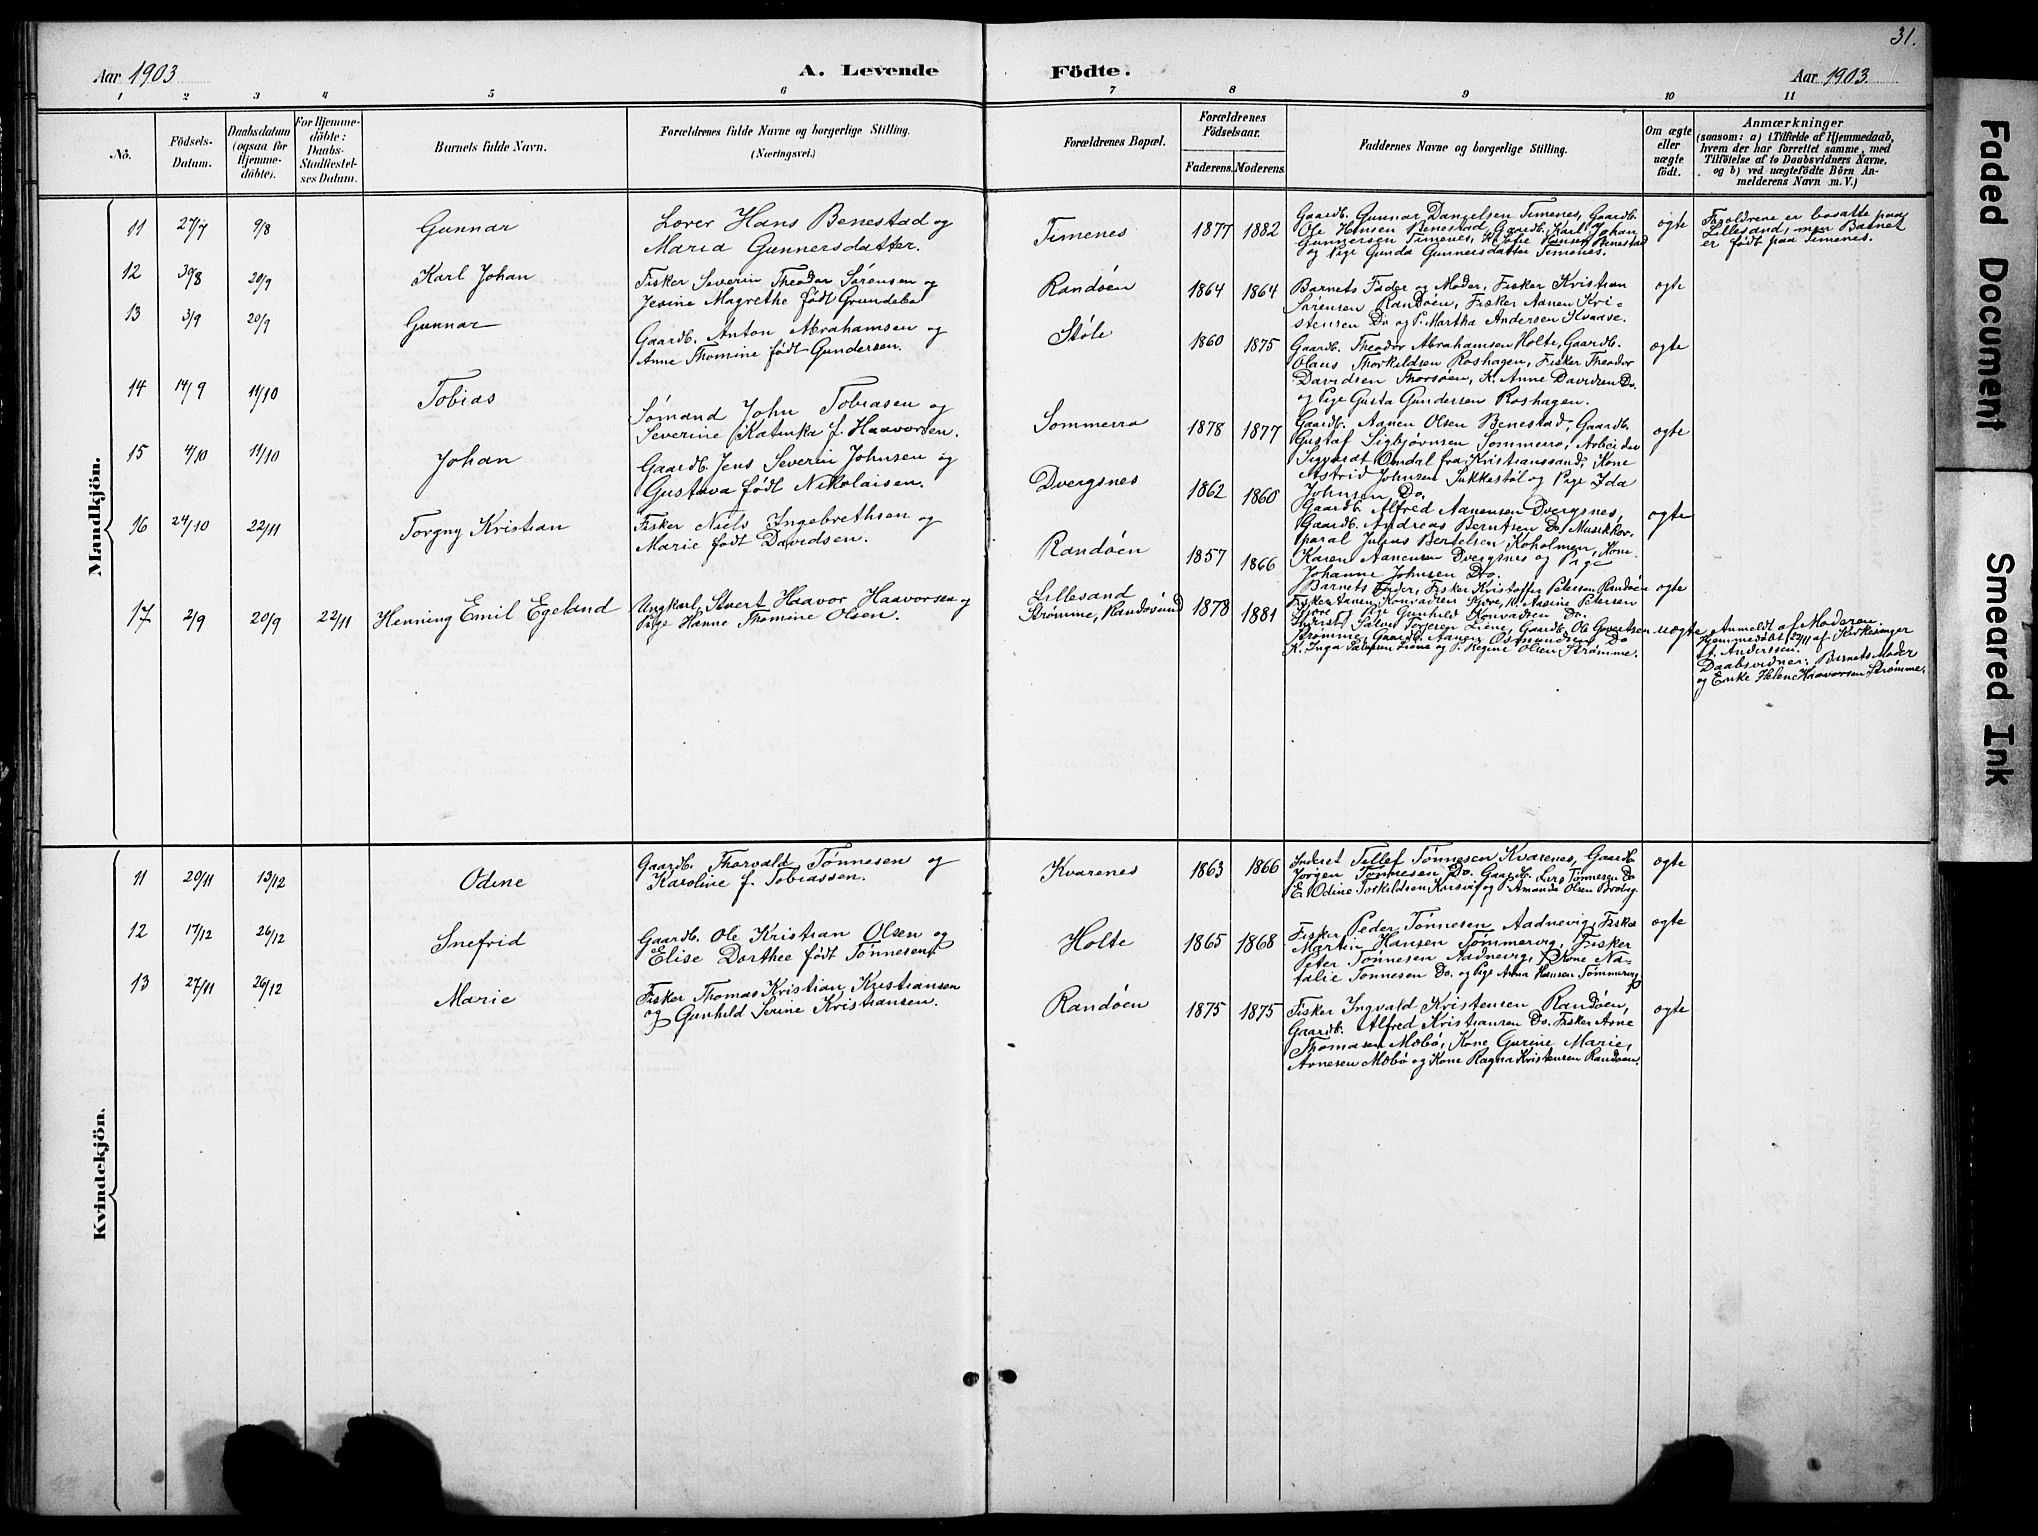 31.
Aar 1903
A. Levende
Födte.
Aar 1903.
1 2 3 4 5 6 7 8 9 10 11
No.
Födsels-
Datum.
Daabsdatum
(ogsaa för
Hjemme-
döbte).
For Hjemme-
döbte:
Daabs-
Stadfæstel-
ses Datum.
Barnets fulde Navn.
Forældrenes fulde Navne og borgerlige Stilling.
(Næringsvei.)
Forældrenes Bopæl.
Forældrenes
Födselsaar.
Faderens. Moderens.
Faddernes Navne og borgerlige Stilling.
Om ægte
eller
uægte
födt.
Anmærkninger
(saasom: a) i Tilfælde af Hjemmedaab,
hvem der har forrettet samme, med
Tilföielse af to Daabsvidners Navne,
og b) ved uægtefödte Börn An-
melderens Navn m. V.)
Mandkjön.
11 27/7 9/8 Gunnar
Lærer Hans Benestad og
Maria Gunnersdatter.
Timenes 1877 1882
Gaardb. Gunnar Danielsen Timenes, Gaardb.
Ole Hansen Benestad, Gaardb. Karl Johan
Gunnersen Timenes, K. Sofie Hansen Benestad
og Pige Gunda Gunnersdatter Timenes.
ægte
Forældrene er bosatte paa
Lillesand, men Barnet
er født paa Timenes.
12 30/8 20/9 Karl Johan
Fisker Severin Theodor Sørensen og
Jesine Magrethe født Grundebø
Randøen 1864 1864
Barnets Fader og Moder, Fisker Kristian
Sørensen Randøen, Fisker Aanen Kri-
stensen Do og P. Martha Andersen Kvaase.
ægte
13 3/9 20/9 Gunnar
Gaardb. Anton Abrahamsen og
Anne Thomine født Gundersen.
Støle 1860 1875
Gaardb. Theodor Abrahamsen Holte, Gaardb.
Olaus Thorkildsen Roshagen, Fisker Theodor
Davidsen Thorsøen, K. Anne Davidsen Do.
og Pige Gusta Gundersen Roshagen.
ægte
14 14/9 11/10 Tobias
Sømand John Tobiasen og
Severine Katinka f. Haavorsen.
Sommerro 1878 1877
Gaardb. Aanen Olsen Benestad, Gaardb.
Gustaf Sigbjørnsen Sommerro, Arbeider
Sigvardt Omdal fra Kristianssand, Kone
Astrid Johnsen Sukkestøl og Pige Ida
Johnsen Do.
ægte
15 4/10 11/10 Johan
Gaardb. Jens Severin Johnsen og
Gustava født Nikolaisen.
Dvergsnes 1862 1860
Gaardb. Alfred Aanensen Dvergsnes,
Gaardb. Andreas Berntsen Do, Musikkor-
poral Julius Bertelsen Koholmen, Kone
Karen Aanensen Dvergsnes og Pige
Johanne Johnsen Do.
ægte
16 24/10 22/11 Torgny Kristian
Fisker Niels Ingebrethsen og
Marie født Davidsen.
Randøen 1857 1866
Barnets Fader, Fisker Kristoffer Petersen Randøen
Fisker Aanen Konradsen Kjøre, K. Aasine Petersen
Kjøre og Pige Gunhild Konradsen Do.
ægte
17 2/9 20/9 22/11 Henning Emil Egeland
Ungkarl Styert Haavor Haavorsen og
Pige Hanne Thomine Olsen.
Lillesand
Strømme, Randøsund 1878 1881
Inderst Salve Torjersen Liene, Gaardb. Ole Gjvertsen
Strømme, Gaardb. Aanen Osmundsen Do
K. Inga Salvesen Liene og P. Regine Olsen Strømme.
uægte
Anmeldt af Moderen.
Hjemmedøbt 20/11 af Kirkesanger
A. Anderssen.
Daabsvidner: Barnets Moder
og Enke Helene Haavorsen Strømme.
Kvindekjön.
11 20/11 13/12 Odine
Gaardb. Thorvald Tønnesen og
Karoline f. Tobiassen.
Kvarenes 1863 1866
Inderst Tellef Tønnesen Kvarenes, Gaardb
Jørgen Tønnesen Do. Gaardb. Lars Tønnesen Do
E. Odine Torkildsen Kusvig og P. Amanda Olsen Brobyg.
ægte
12 17/12 26/12 Snefrid
Gaardb. Ole Kristian Olsen og
Elise Dorthee født Tønnesen.
Holte 1865 1868
Fisker Peder Tønnesen Aadnevig, Fisker
Martin Hansen Tømmervig, Fisker
Peter Tønnesen Aadnevig, Kone Na-
talie Tønnesen Do. og Pige Anna Hansen Tømmervig
ægte
13 27/11 26/12 Marie
Fisker Thomas Kristian Kristiansen
og Gunhild Serine Kristiansen.
Randøen 1875 1875
Fisker Ingvald Kristensen Randøen,
Gaardb. Alfred Kristiansen Do. Fisker Arne
Thomasen Mæbø, Kone Gurine Marie
Arnesen Mæbø og Kone Ragna Kristensen Randøen.
ægte
Faded Document
Smeared Ink